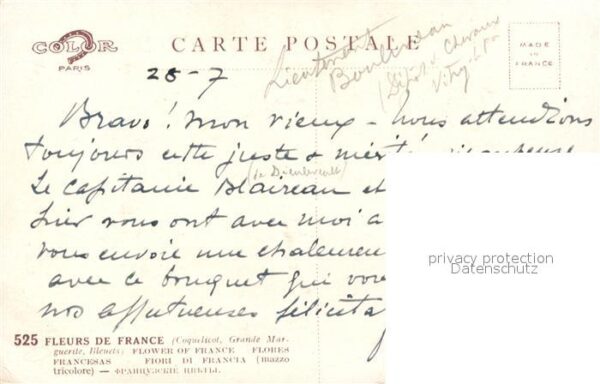 COLOR
PARIS
CARTE POSTALE
MADE
IN
FRANCE
28-7
Lieutenant
Dépôt de Chevaux
Vitry
Bravo! mon vieux - nous attendions
toujours cette juste & méritée récompense
Le Capitaine Blaireau et
hier vous ont avec moi a
vous envoie une chaleureu
avec ce bouquet qui vou
nos affectueuses félicita
privacy protection
Datenschutz
525 FLEURS DE FRANCE (Coquelicot, Grande Mar-
guerite, Bleuets) FLOWER OF FRANCE FLORES
FRANCESAS FIORI DI FRANCIA (mazzo
tricolore) — ФРАНЦУЗСКIЕ ЦВѢТЫ.